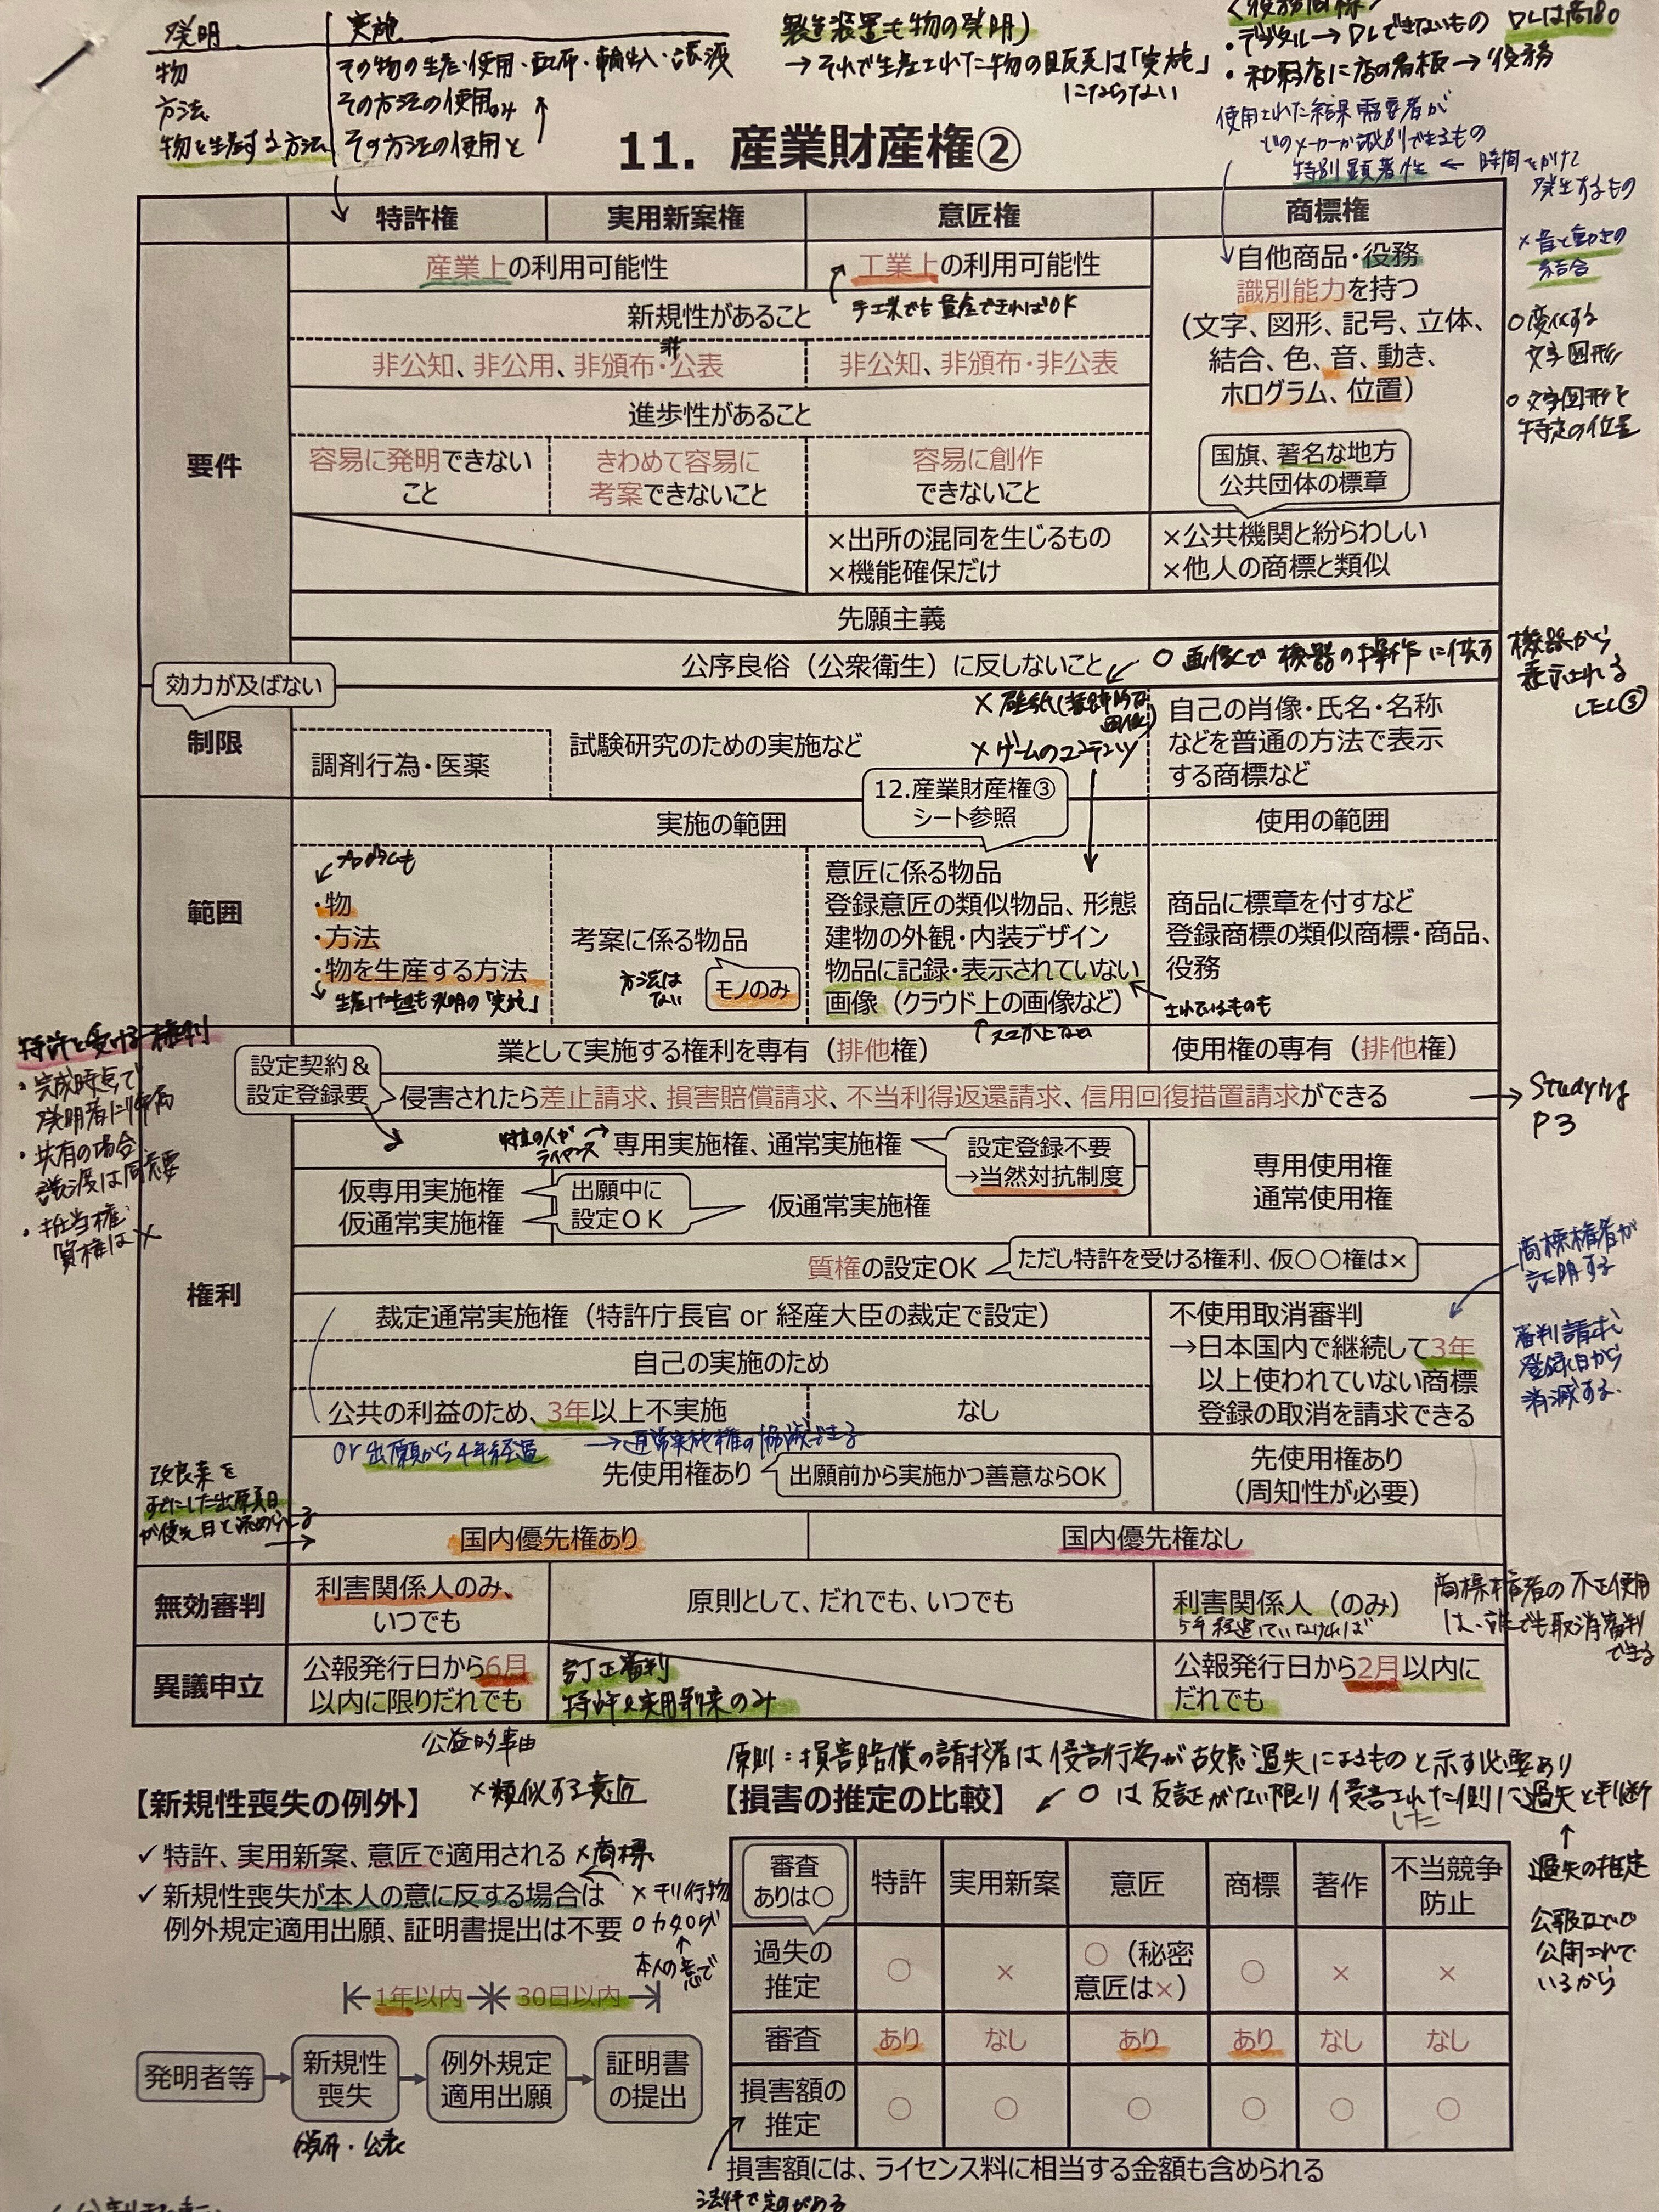 発明 実施
物 その物の生産・使用・配布・輸出入・譲渡
方法 その方法の使用のみ
物を生産する方法 その方法の使用と
製造装置も物の発明)
→それで生産された物の販売は「実施」
にならない
・デジタル→DLできないもの
使用された結果需要者が
どのメーカーか識別できるもの
特別顕著性 ← 時間をかけて
発生するもの
11. 産業財産権②
特許権 実用新案権 意匠権 商標権
要件
産業上の利用可能性
工業上の利用可能性
手工業でも量産できればOK
新規性があること
非公知、非公用、非頒布・非公表
非公知、非頒布・非公表
進歩性があること
容易に発明できない
こと
きわめて容易に
考案できないこと
容易に創作
できないこと
×出所の混同を生じるもの
×機能確保だけ
自他商品・役務
識別能力を持つ
(文字、図形、記号、立体、
結合、色、音、動き、
ホログラム、位置)
×音と動きの
結合
○変化する
文字図形
○文字図形を
特定の位置
国旗、著名な地方
公共団体の標章
×公共機関と紛らわしい
×他人の商標と類似
先願主義
公序良俗(公衆衛生)に反しないこと
○画像で機器の操作に供す
機器から
表示される
効力が及ばない
制限
調剤行為・医薬
試験研究のための実施など
×壁紙(装飾的な
画像)
×ゲームのコンテンツ
自己の肖像・氏名・名称
などを普通の方法で表示
する商標など
12.産業財産権③
シート参照
範囲
実施の範囲
使用の範囲
プログラムも
・物
・方法
・物を生産する方法
考案に係る物品
方法は
ない
モノのみ
意匠に係る物品
登録意匠の類似物品、形態
建物の外観・内装デザイン
物品に記録・表示されていない
画像(クラウド上の画像など)
されているものも
商品に標章を付すなど
登録商標の類似商標・商品、
役務
特許を受ける権利
・完成時点で
発明者に帰属
・共有の場合
譲渡は同意要
・抵当権
質権は×
権利
業として実施する権利を専有(排他権)
使用権の専有(排他権)
設定契約&
設定登録要
侵害されたら差止請求、損害賠償請求、不当利得返還請求、信用回復措置請求ができる
→ Studying
P3
特定の人が
ライセンス
専用実施権、通常実施権
設定登録不要
→当然対抗制度
専用使用権
通常使用権
仮専用実施権
仮通常実施権
出願中に
設定OK
仮通常実施権
質権の設定OK
ただし特許を受ける権利、仮○○権は×
裁定通常実施権(特許庁長官 or 経産大臣の裁定で設定)
自己の実施のため
公共の利益のため、3年以上不実施
なし
or 出願から4年経過
不使用取消審判
→日本国内で継続して3年
以上使われていない商標
登録の取消を請求できる
商標権者が
証明する
審判請求
登録日から
消滅する.
先使用権あり
出願前から実施かつ善意ならOK
先使用権あり
(周知性が必要)
改良案を
国内優先権あり
国内優先権なし
無効審判
利害関係人のみ、
いつでも
原則として、だれでも、いつでも
利害関係人(のみ)
5年経過していなければ
商標権者の不正使用
は、誰でも取消審判
できる
異議申立
公報発行日から6月
以内に限りだれでも
訂正審判
特許&実用新案のみ
公報発行日から2月以内に
だれでも
公益的事由
原則:損害賠償の請求者は侵害行為が故意過失によるものと示す必要あり
【新規性喪失の例外】
×類似する意匠
✓特許、実用新案、意匠で適用される ×商標
✓新規性喪失が本人の意に反する場合は
例外規定適用出願、証明書提出は不要
×刊行物
○カタログ
本人の意で
1年以内 30日以内
発明者等 → 新規性喪失 → 例外規定適用出願 → 証明書の提出
頒布・公表
【損害の推定の比較】
○は反証がない限り侵害された側に過失と判断
した
過失の推定
公報などで
公開されて
いるから
審査ありは○ 特許 実用新案 意匠 商標 著作 不当競争防止
過失の推定 ○ × ○(秘密意匠は×) ○ × ×
審査 あり なし あり あり なし なし
損害額の推定 ○ ○ ○ ○ ○ ○
損害額には、ライセンス料に相当する金額も含められる
法律で定めがある